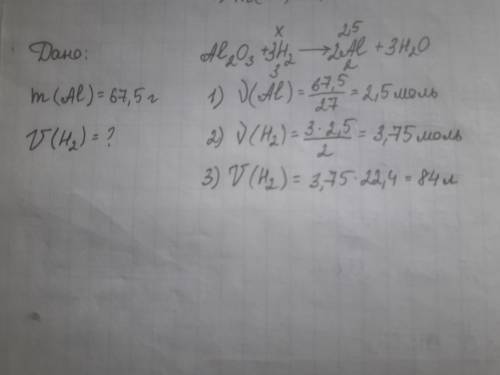 Дано:
m(Al) = 67,5 г
V(H₂) = ?
x 2,5
Al₂O₃ + 3H₂ ⟶ 2Al + 3H₂O
3 2
1) ν(Al) = 67,5/27 = 2,5 моль
2) ν(H₂) = 3·2,5/2 = 3,75 моль
3) V(H₂) = 3,75·22,4 = 84 л